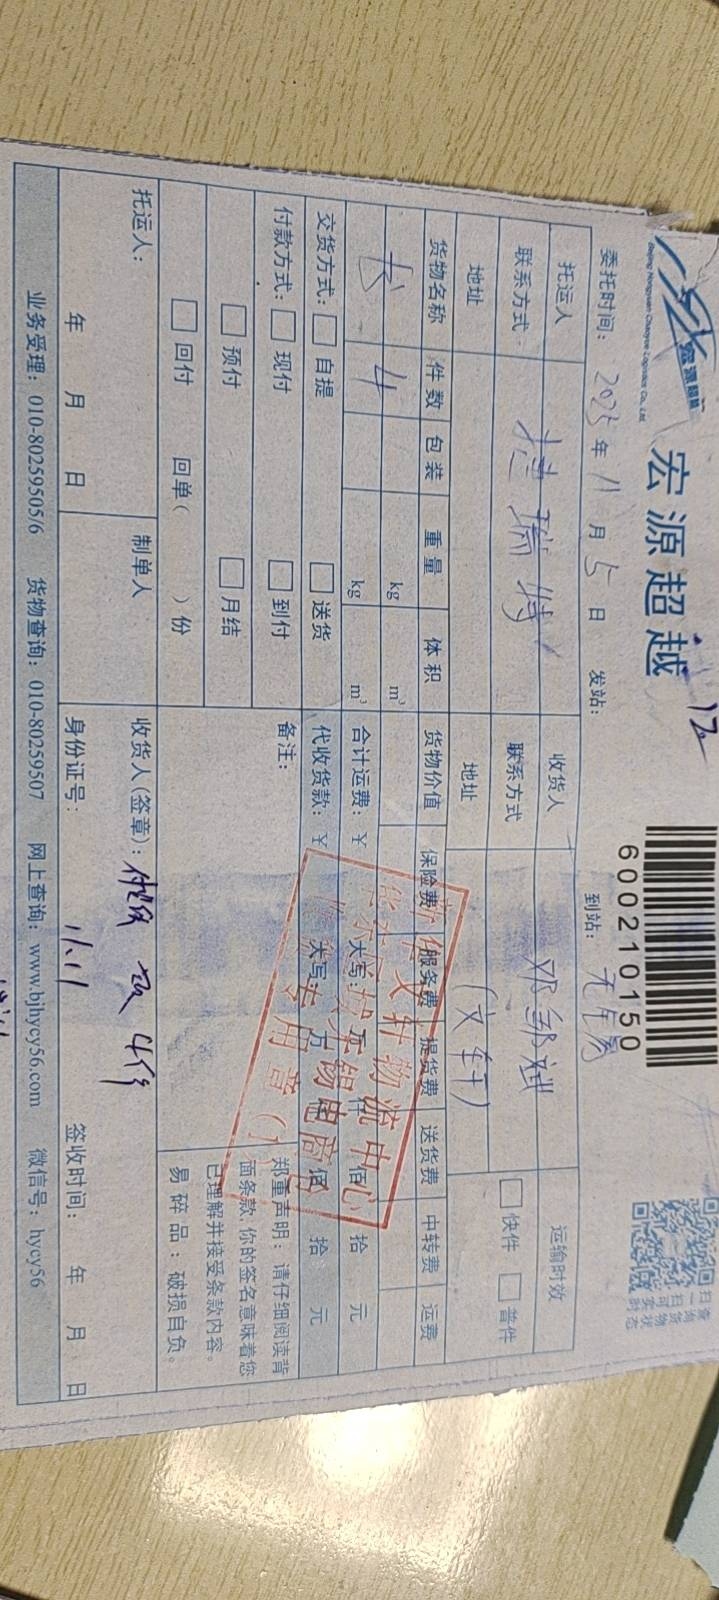 宏源超越
Beijing Hongyuan Chaoyue Logistics Co., Ltd.
宏源超越
600210150
扫一扫可实时
查询货物状态
委托时间: 2025年11月5日 发站: 到站:
托运人 捷瑞特 收货人 运输时效
联系方式 联系方式 快件 普件
地址 地址 (文轩)
货物名称 件数 包装 重量 体积 货物价值 保险费 服务费 提货费 送货费 中转费 运费
书 4 kg m³
kg m³ 合计运费: ¥ 大写: 万 仟 佰 拾 元
交货方式: 自提 送货 代收货款: ¥ 大写: 万 仟 佰 拾 元
付款方式: 现付 到付 备注:
预付 月结
回付 回单( )份
郑重声明: 请仔细阅读背
面条款, 你的签名意味着您
已理解并接受条款内容。
易碎品: 破损自负。
托运人: 制单人 收货人(签章): 收4件
年 月 日 身份证号: 11.11 签收时间: 年 月 日
业务受理: 010-80259505/6 货物查询: 010-80259507 网上查询: www.bjhycy56.com 微信号: hycy56
文轩物流中心
无锡电商
专用章